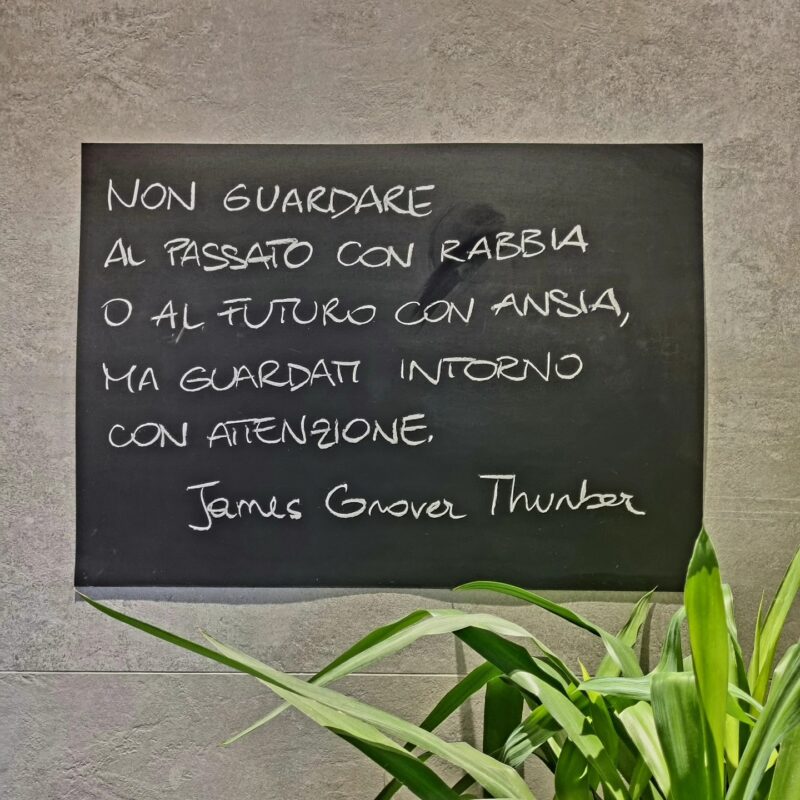 NON GUARDARE
AL PASSATO CON RABBIA
O AL FUTURO CON ANSIA,
MA GUARDATI INTORNO
CON ATTENZIONE.
James Grover Thurber